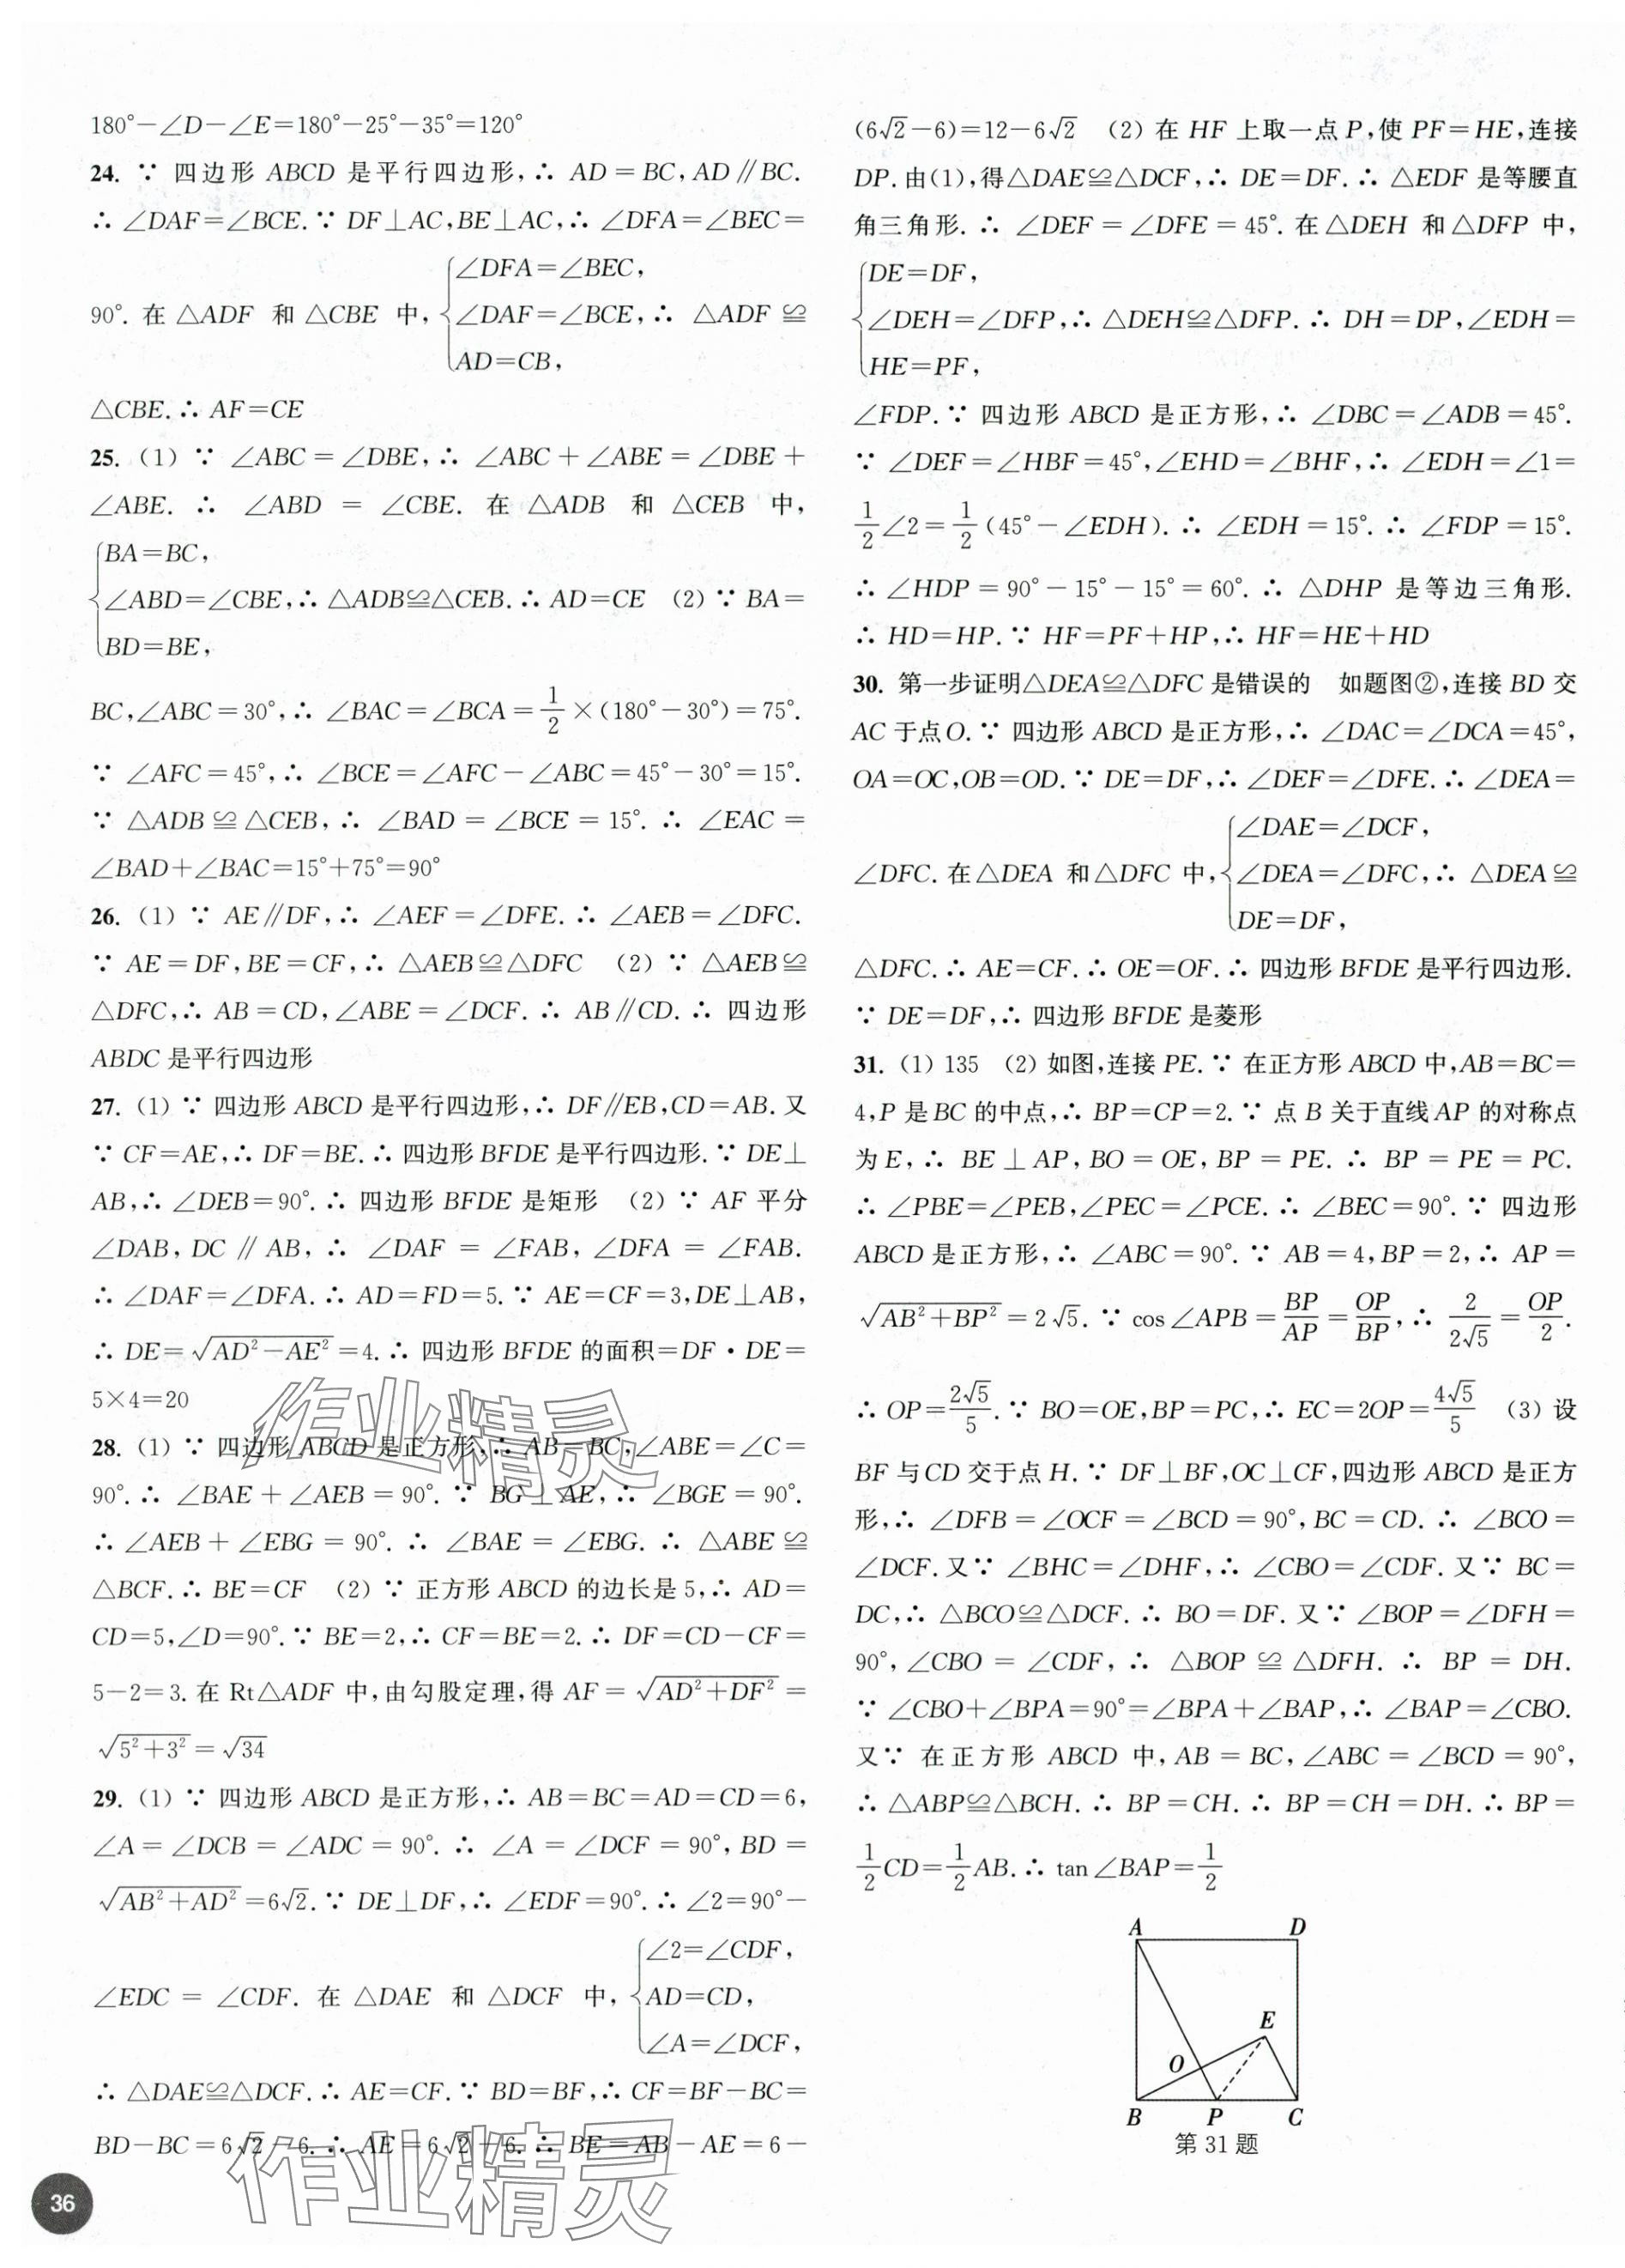 180°－∠D－∠E＝180°－25°－35°＝120°
24. ∵ 四边形 ABCD 是平行四边形，∴ AD＝BC，AD∥BC.
∴ ∠DAF＝∠BCE. ∵ DF⊥AC，BE⊥AC，∴ ∠DFA＝∠BEC＝
90°. 在 △ADF 和 △CBE 中，{∠DFA＝∠BEC，
∠DAF＝∠BCE，∴ △ADF ≌
AD＝CB，
△CBE. ∴ AF＝CE
25. (1) ∵ ∠ABC＝∠DBE，∴ ∠ABC＋∠ABE＝∠DBE＋
∠ABE. ∴ ∠ABD ＝ ∠CBE. 在 △ADB 和 △CEB 中，
{BA＝BC，
∠ABD＝∠CBE，∴ △ADB≌△CEB. ∴ AD＝CE (2) ∵ BA＝
BD＝BE，
BC，∠ABC＝30°，∴ ∠BAC＝∠BCA＝1/2×(180°－30°)＝75°.
∵ ∠AFC＝45°，∴ ∠BCE＝∠AFC－∠ABC＝45°－30°＝15°.
∵ △ADB ≌ △CEB，∴ ∠BAD ＝ ∠BCE ＝ 15°. ∴ ∠EAC ＝
∠BAD＋∠BAC＝15°＋75°＝90°
26. (1) ∵ AE∥DF，∴ ∠AEF＝∠DFE. ∴ ∠AEB＝∠DFC.
∵ AE＝DF，BE＝CF，∴ △AEB≌△DFC (2) ∵ △AEB≌
△DFC，∴ AB＝CD，∠ABE＝∠DCF. ∴ AB∥CD. ∴ 四边形
ABDC 是平行四边形
27. (1) ∵ 四边形 ABCD 是平行四边形，∴ DF∥EB，CD＝AB. 又
∵ CF＝AE，∴ DF＝BE. ∴ 四边形 BFDE 是平行四边形. ∵ DE⊥
AB，∴ ∠DEB＝90°. ∴ 四边形 BFDE 是矩形 (2) ∵ AF 平分
∠DAB，DC ∥ AB，∴ ∠DAF ＝ ∠FAB，∠DFA ＝ ∠FAB.
∴ ∠DAF＝∠DFA. ∴ AD＝FD＝5. ∵ AE＝CF＝3，DE⊥AB，
∴ DE＝√(AD²－AE²)＝4. ∴ 四边形 BFDE 的面积＝DF·DE＝
5×4＝20
28. (1) ∵ 四边形 ABCD 是正方形，∴ AB＝BC，∠ABE＝∠C＝
90°. ∴ ∠BAE＋∠AEB＝90°. ∵ BG⊥AE，∴ ∠BGE＝90°.
∴ ∠AEB＋∠EBG ＝ 90°. ∴ ∠BAE ＝ ∠EBG. ∴ △ABE ≌
△BCF. ∴ BE＝CF (2) ∵ 正方形 ABCD 的边长是 5，∴ AD＝
CD＝5，∠D＝90°. ∵ BE＝2，∴ CF＝BE＝2. ∴ DF＝CD－CF＝
5－2＝3. 在 Rt△ADF 中，由勾股定理，得 AF＝√(AD²＋DF²)＝
√(5²＋3²)＝√34
29. (1) ∵ 四边形 ABCD 是正方形，∴ AB＝BC＝AD＝CD＝6，
∠A＝∠DCB＝∠ADC＝90°. ∴ ∠A＝∠DCF＝90°，BD＝
√(AB²＋AD²)＝6√2. ∵ DE⊥DF，∴ ∠EDF＝90°. ∴ ∠2＝90°－
∠EDC ＝ ∠CDF. 在 △DAE 和 △DCF 中，{∠2＝∠CDF，
AD＝CD，
∠A＝∠DCF，
∴ △DAE≌△DCF. ∴ AE＝CF. ∵ BD＝BF，∴ CF＝BF－BC＝
BD－BC＝6√2－6. ∴ AE＝6√2－6. ∴ BE＝AB－AE＝6－
(6√2－6)＝12－6√2 (2) 在 HF 上取一点 P，使 PF＝HE，连接
DP. 由(1)，得△DAE≌△DCF，∴ DE＝DF. ∴ △EDF 是等腰直
角三角形. ∴ ∠DEF＝∠DFE＝45°. 在△DEH 和△DFP 中，
{DE＝DF，
∠DEH＝∠DFP，∴ △DEH≌△DFP. ∴ DH＝DP，∠EDH＝
HE＝PF，
∠FDP. ∵ 四边形 ABCD 是正方形，∴ ∠DBC＝∠ADB＝45°.
∵ ∠DEF＝∠HBF＝45°，∠EHD＝∠BHF，∴ ∠EDH＝∠1＝
1/2∠2＝1/2(45°－∠EDH). ∴ ∠EDH＝15°. ∴ ∠FDP＝15°.
∴ ∠HDP＝90°－15°－15°＝60°. ∴ △DHP 是等边三角形.
∴ HD＝HP. ∵ HF＝PF＋HP，∴ HF＝HE＋HD
30. 第一步证明△DEA≌△DFC 是错误的 如题图②，连接 BD 交
AC 于点 O. ∵ 四边形 ABCD 是正方形，∴ ∠DAC＝∠DCA＝45°，
OA＝OC，OB＝OD. ∵ DE＝DF，∴ ∠DEF＝∠DFE. ∴ ∠DEA＝
∠DFC. 在△DEA 和△DFC 中，{∠DAE＝∠DCF，
∠DEA＝∠DFC，∴ △DEA≌
DE＝DF，
△DFC. ∴ AE＝CF. ∴ OE＝OF. ∴ 四边形 BFDE 是平行四边形.
∵ DE＝DF，∴ 四边形 BFDE 是菱形
31. (1) 135 (2) 如图，连接 PE. ∵ 在正方形 ABCD 中，AB＝BC＝
4，P 是 BC 的中点，∴ BP＝CP＝2. ∵ 点 B 关于直线 AP 的对称点
为 E，∴ BE⊥AP，BO＝OE，BP＝PE. ∴ BP＝PE＝PC.
∴ ∠PBE＝∠PEB，∠PEC＝∠PCE. ∴ ∠BEC＝90°. ∵ 四边形
ABCD 是正方形，∴ ∠ABC＝90°. ∵ AB＝4，BP＝2，∴ AP＝
√(AB²＋BP²)＝2√5. ∵ cos∠APB＝BP/AP＝OP/BP，∴ 2/(2√5)＝OP/2.
∴ OP＝2√5/5. ∵ BO＝OE，BP＝PC，∴ EC＝2OP＝4√5/5 (3) 设
BF 与 CD 交于点 H. ∵ DF⊥BF，OC⊥CF，四边形 ABCD 是正方
形，∴ ∠DFB＝∠OCF＝∠BCD＝90°，BC＝CD. ∴ ∠BCO＝
∠DCF. 又∵ ∠BHC＝∠DHF，∴ ∠CBO＝∠CDF. 又∵ BC＝
DC，∴ △BCO≌△DCF. ∴ BO＝DF. 又∵ ∠BOP＝∠DFH＝
90°，∠CBO ＝ ∠CDF，∴ △BOP ≌ △DFH. ∴ BP ＝ DH.
∵ ∠CBO＋∠BPA＝90°＝∠BPA＋∠BAP，∴ ∠BAP＝∠CBO.
又∵ 在正方形 ABCD 中，AB＝BC，∠ABC＝∠BCD＝90°，
∴ △ABP≌△BCH. ∴ BP＝CH. ∴ BP＝CH＝DH. ∴ BP＝
1/2CD＝1/2AB. ∴ tan∠BAP＝1/2
A D
E
O
B P C
第 31 题
作业精灵
作业精灵
36